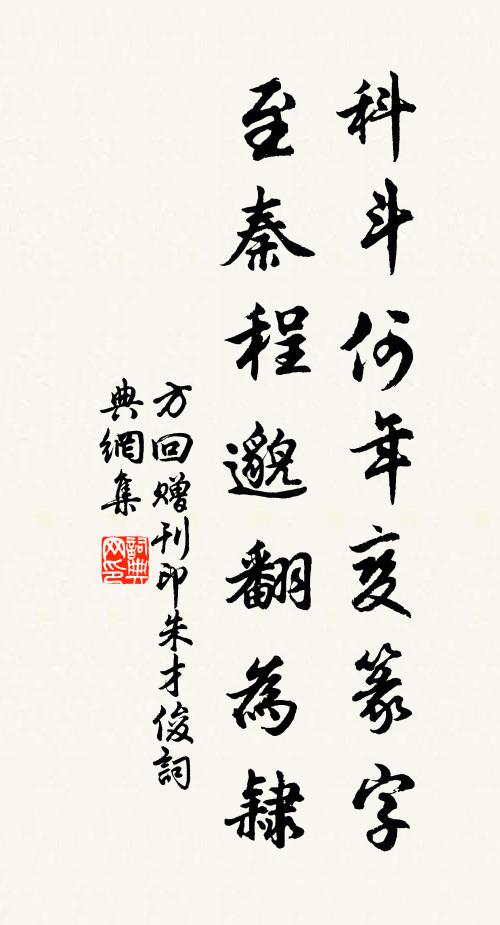 科斗何年变篆字
至秦程邈翻為隸
方回赠刊印朱才俊詞
典網集
詞典
网印